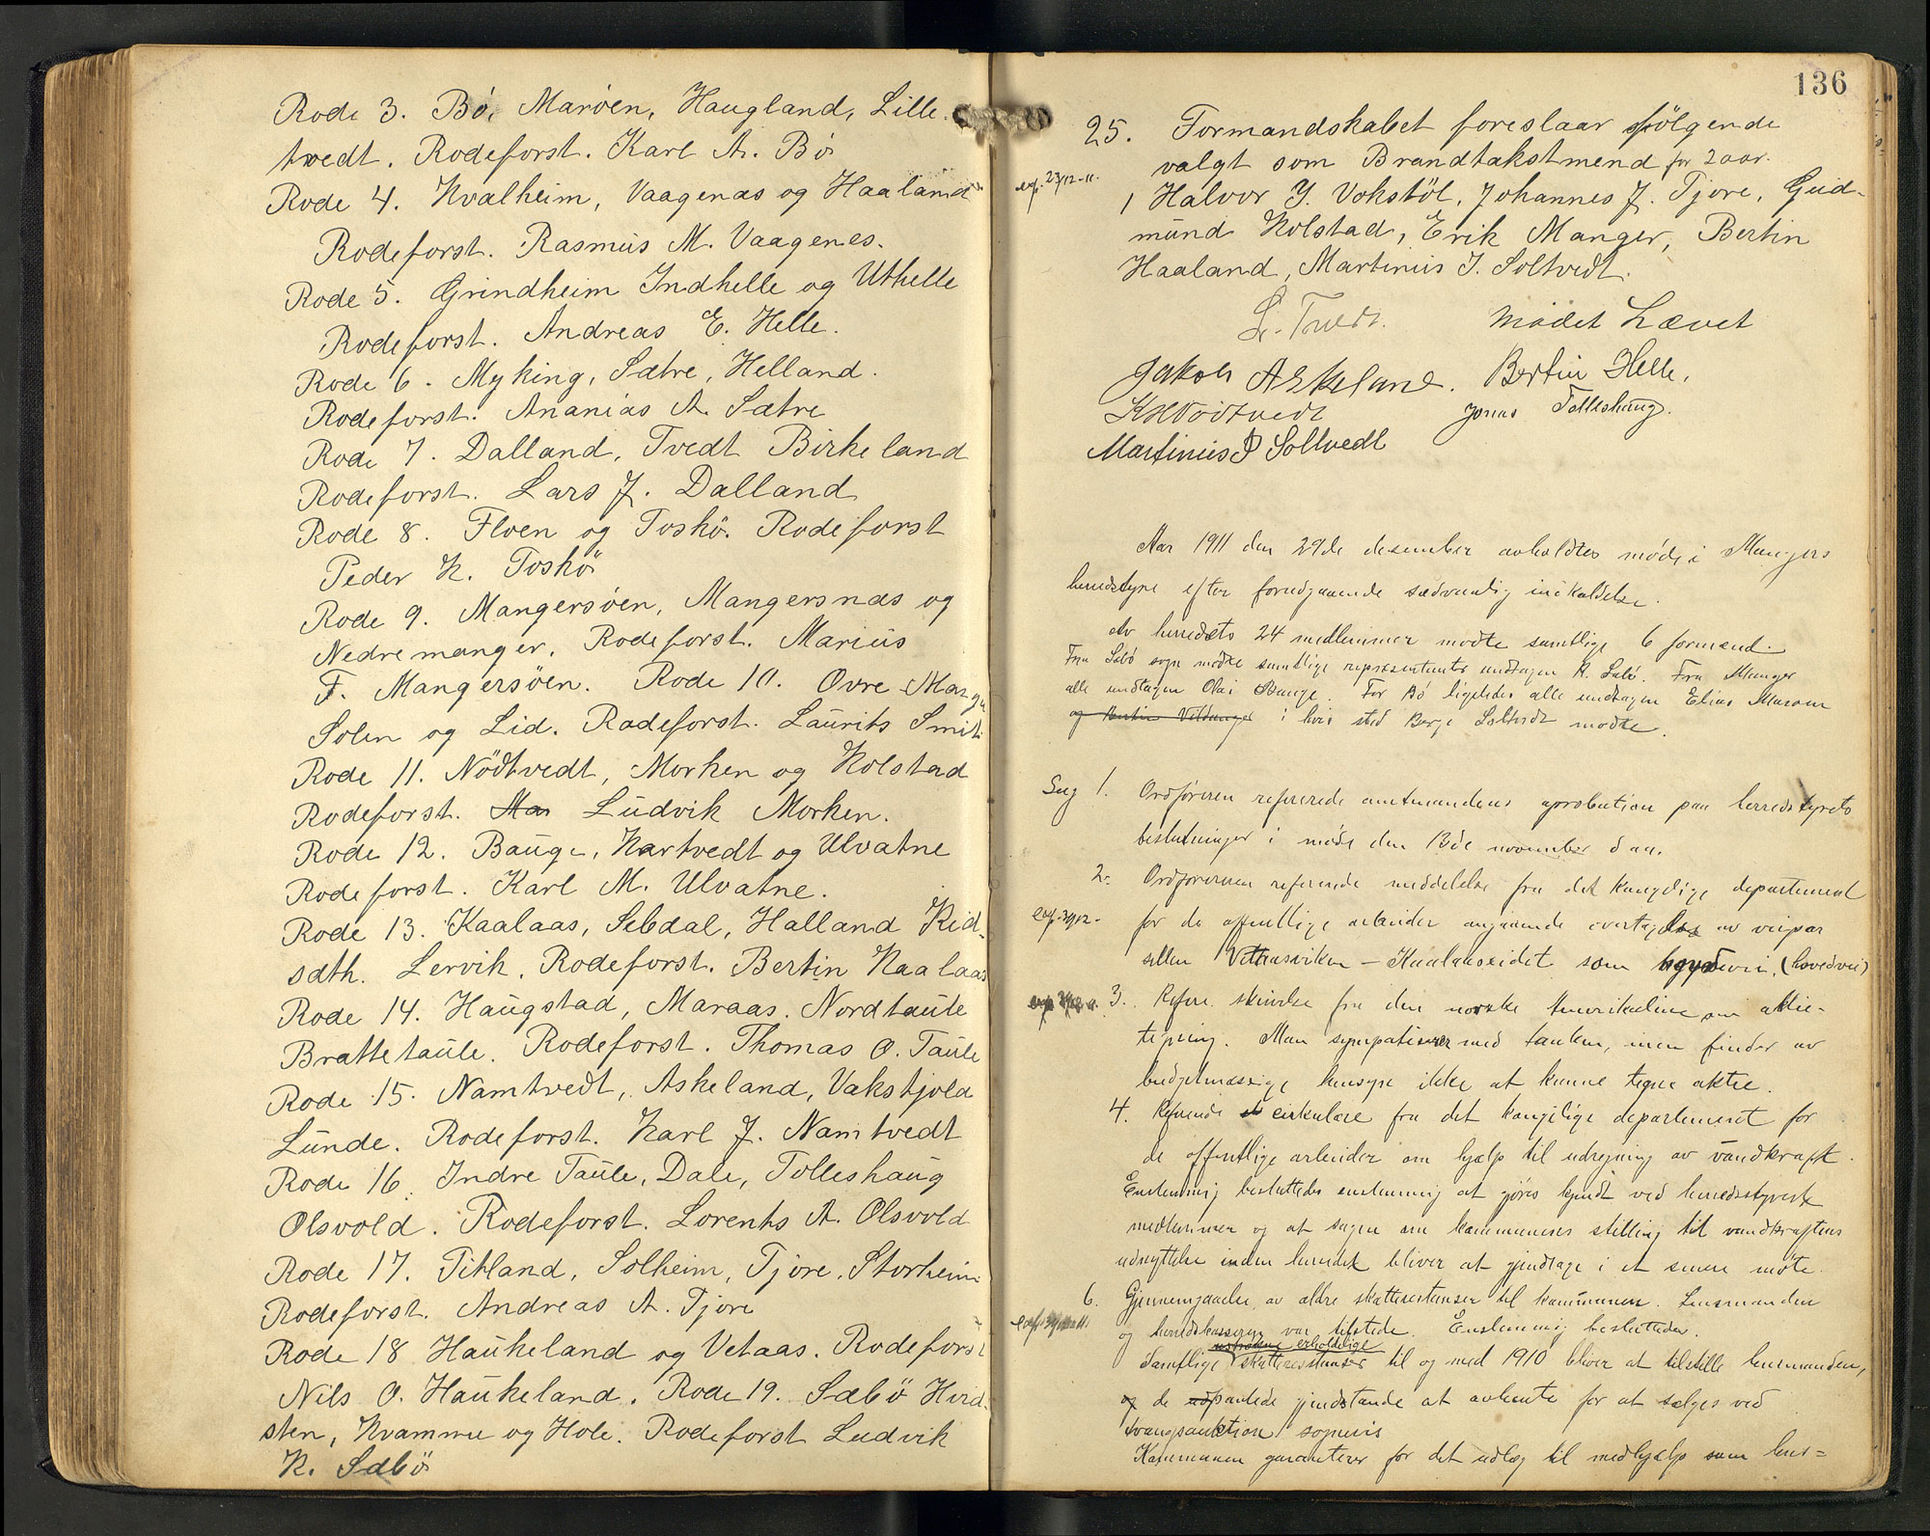 Rode 3. Bö, Maröen, Haugland, Lille-
tvedt. Rodeforst. Karl A. Bö
Rode 4. Kvalheim, Vaagenæs og Haaland
Rodeforst. Rasmus M. Vaagenes.
Rode 5. Grindheim Indhelle og Uthelle
Rodeforst. Andreas E. Helle.
Rode 6. Myking, Sætre, Helland.
Rodeforst. Ananias A. Sætre
Rode 7. Dalland, Tvedt Birkeland
Rodeforst. Lars J. Dalland
Rode 8. Floen og Toskö. Rodeforst
Peder K. Toskö
Rode 9. Mangersöen, Mangersnæs og
Nedremanger. Rodeforst. Marius
F. Mangersöen. Rode 10. Ovre Manger
Solen og Lid. Rodeforst. Laurits Smith
Rode 11. Nödtvedt, Morken og Kolstad
Rodeforst. Ludvik Morken.
Rode 12. Bauge, Kartvedt og Ulvatne
Rodeforst. Karl M. Ulvatne.
Rode 13. Kaalaas, Sebdal, Halland Rid-
sæth. Lervik. Rodeforst. Bertin Kaalaas
Rode 14. Haugstad, Maraas. Nordtaule
Brattetaule. Rodeforst. Thomas O. Taule
Rode 15. Namtvedt, Askeland, Vakstjold
Lunde. Rodeforst. Karl J. Namtvedt
Rode 16. Indre Taule, Dale, Tolleshaug
Olsvold. Rodeforst. Lorents A. Olsvold
Rode 17. Titland, Solheim, Tjore. Storheim
Rodeforst. Andreas A. Tjore
Rode 18 Haukeland og Vetaas. Rodeforst
Nils O. Haukeland. Rode 19. Sæbö Hvid-
sten, Kvamme og Hole. Rodeforst Ludvik
K. Sæbö
136
25. Formandskabet foreslaar fölgende
valgt som Brandtakstmend for 2 aar.
exp. 23/12-11.
1 Halvor Y. Vokstöl, Johannes J. Tjore, Gud-
mund Kolstad, Erik Manger, Bertin
Haaland, Martinus J. Soltvedt.
L. Tvedt. Mödet Hævet
Jakob Askeland. Bertin Helle,
K Nödtvedt Jonas Tolleshaug.
Martinus J Soltvedt
Aar 1911 den 29de desember avholdtes möde i Mangers
herredstyre efter forudgaaende sædvanlig indkaldelse.
Av herredets 24 medlemmer mödte samtlige 6 formænd.
Fra Sæbö sogn mödte samtlige repræsentanter undtagen K. Sæbö. Fra Manger
alle undtagen Olai Bauge. For Bö ligeledes alle undtagen Elias Maroen
og Bertin i hvis sted Berge Soltvedt mödte.
Sag 1. Ordföreren refererede amtmandens aprobation paa herredstyrets
beslutninger i möde den 13de november d. aa.
2. Ordföreren refererede meddelelse fra det kongelige departement
exp. 30/12-
for de offentlige arbeider angaaende overtagelse av veipar
sellen Vetaasviken – Kaalaaseidet som bygdevei, (hovedvei)
3. Refere. skrivelse fra den norske Amerikalinie om aktie-
tegning. Man sympatiserer med tanken, men finder av
budgetmæssige hensyn ikke at kunne tegne aktie.
4. Refererede cirkulære fra det kongelige departement for
de offentlige arbeider om hjælp til utredning av vandkraft.
Enstemmig besluttedes enstemmig at gjöres kjendt ved herredsstyrets
medlemmer og at sagen om kommunens stilling til vandkraftens
udnyttelse inden herredet bliver at gjendtage i et senere möte.
6. Gjennemgaaelse av ældre skatterestanser til kommunen. Lensmanden
og herredskasserer var tilstede. Enstemmig besluttedes.
erholdelige
Samtlige skatterestanser til og med 1910 bliver at tilstille lensmanden,
og de udpantede gjenstande at avhente for at sælges ved
tvangsauktion sognevis
Kommunen garanterer for det udlæg til medhjælp som lens=